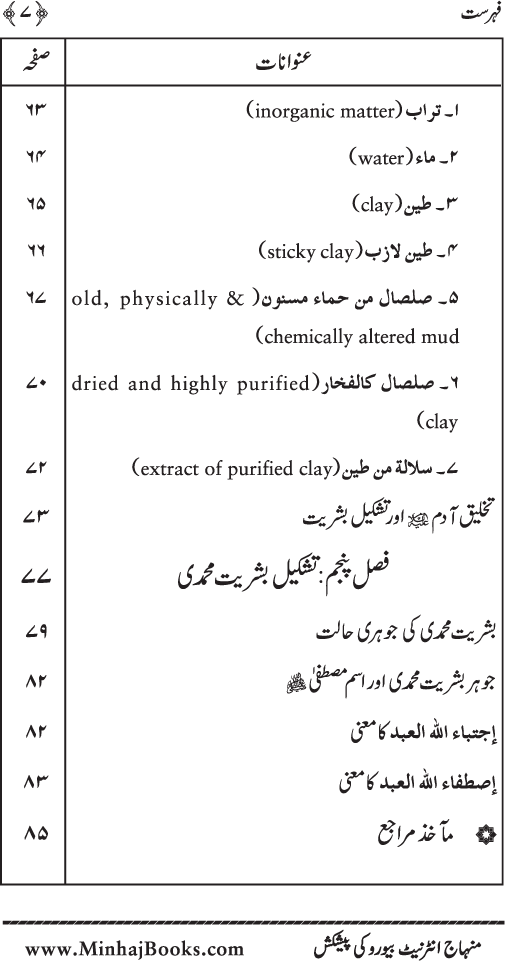 فہرست ﴿۷﴾
عنوانات صفحہ
۱۔ تراب (inorganic matter) ۶۳
۲۔ ماء (water) ۶۴
۳۔ طین (clay) ۶۵
۴۔ طین لازب (sticky clay) ۶۶
۵۔ صلصال من حماء مسنون (old, physically & ۶۷
chemically altered mud)
۶۔ صلصال کالفخار (dried and highly purified ۷۰
clay)
۷۔ سلالة من طین (extract of purified clay) ۷۲
تخلیق آدم علیہ السلام اور تشکیل بشریت ۷۳
فصل پنجم: تشکیل بشریت محمدی ۷۷
بشریت محمدی کی جوہری حالت ۷۹
جوہر بشریت محمدی اور اسم مصطفیٰ ﷺ ۸۲
إجتباء اللہ العبد کا معنی ۸۲
إصطفاء اللہ العبد کا معنی ۸۳
۞ مآخذ مراجع ۸۵
منہاج انٹرنیٹ بیورو کی پیشکش www.MinhajBooks.com